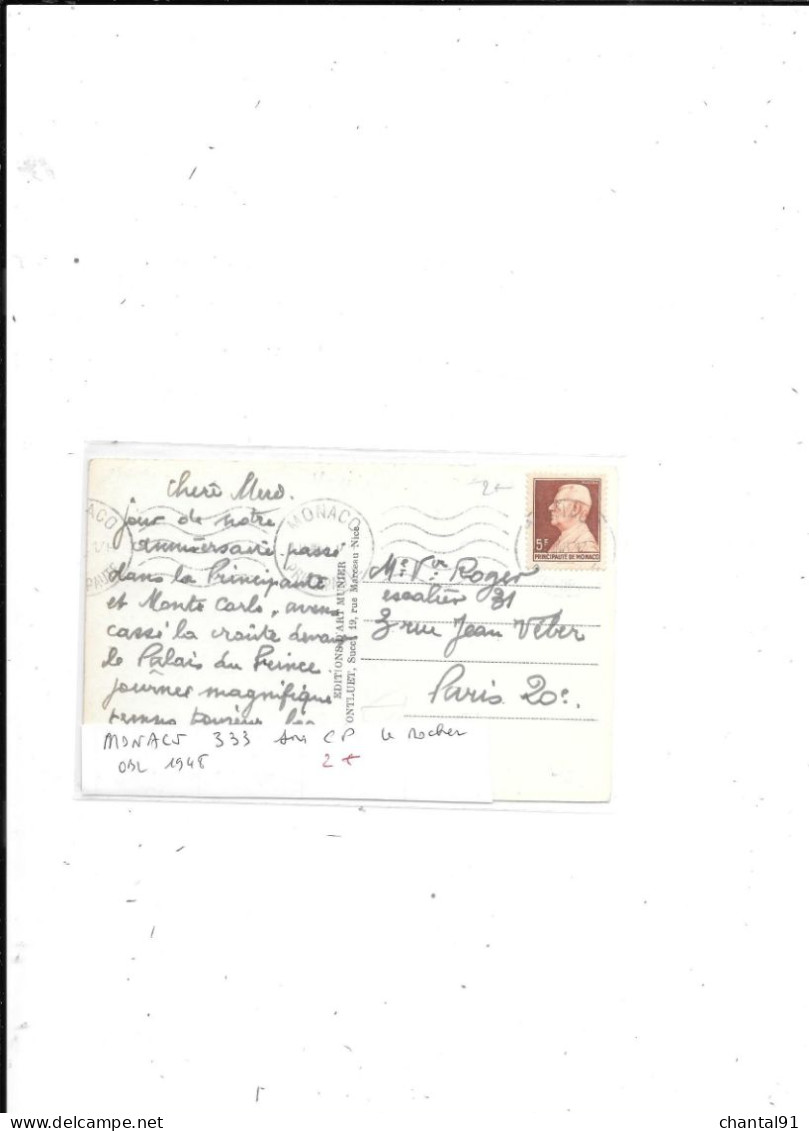 Cherè Merò.
jour de notre
anniversaire passé
dans la Principauté
et Monte Carlo, avons
cassé la croûte devant
le Palais du Prince
journée magnifique
temps
2€
MONACO
MONACO
EDITIONS D'ART MUNIER
ONTLUET, Succr, 19, rue Marceau Nice
5F
PRINCIPAUTÉ DE MONACO
Me Vve Roger
escalier 31
3 rue Jean Véber
Paris 20e.
MONACO 333 sur CP le rocher
OBL 1948 2€
chantal91